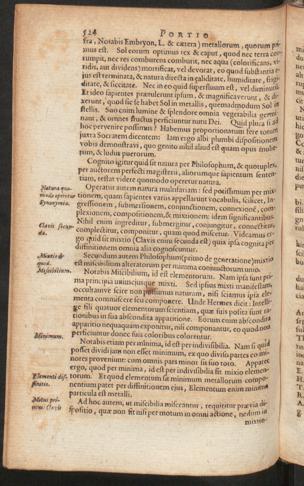 524 PORTIO
fra, Notabis Embryon, L. & catera) metallorum, quorum pri-
mus est. Sol eorum optimus rex & caput, quod nec terra cor-
rumpit, nec res comburens comburit, nec aqua
ridis, aut dividens) mortificat, vel devorat, eo quod substantia e-
jus est terminata, & natura directa in caliditate, humiditate, frigi-
ditate, & siccitate. Nec in eo quid superfluum est, vel diminutum.
Et ideo sapientes prætulerunt ipsum, & magnificaverunt, & di-
xerunt, quod sic se habet Sol in metallis, quemadmodum Sol in
stellis. Suo enim lumine & splendore omnia vegetabilia germi-
nant, & omnes fructus perficiuntur nutu Dei. Quid plura si ad
hoc pervenire possimus? Habemus proportionatum fere totum
juxta Socratem dicentem: Iam ergo albi plumbi dispositionem
vobis demonstravi, quo genito nihil aliud est quam opus mulie-
rum, & ludus puerorum.
Cognito igitur quid sit natura per Philosophum, & quotuplex,
per auctorem perfecti magisterii, aliorumque sapientum senten-
tiam, restat videre quomodo operetur natura.
Natura quo-
modo operatur
Synonyma.
Operatur autem natura multifariam: sed potissimum per mix-
tionem, quam sapientes variis appellarunt vocabulis, scilicet, In-
gressionem, submersionem, conjunctionem, connexionem, com-
plexionem, compositionem, & mixtionem: idem significantibus.
Nihil enim ingreditur, submergitur, conjungitur, connectitur,
Clavis secun-
da.
complectitur, componitur, quam quod miscetur. Videamus er-
go quid sit mixtio (Clavis enim secunda est) quia ipsa cognita per
diffinitionem omnia alia cognoscuntur.
Mixtio
quid.
Miscibilium.
Secundum autem Philosophum (primo de generatione) mixtio
est miscibilium alteratorum per minima conjunctorum unio.
Notabis Miscibilium, id est elementorum. Nam ipsa sunt pri-
ma principia uniuscujusque mixti. Sed ipsius mixti manifestam,
occultamve scire non possumus naturam, nisi sciamus ipsa ele-
menta commiscere seu componere. Unde Hermes dicit: Intelli-
ge fili quatuor elementorum scientiam, quæ suis posita sunt ra-
tionibus in sua abscondita apparitione. Eorum enim absconditæ
apparitio nequaquam exponitur, nisi componantur, eo quod non
perficiuntur donec suis coloribus colorentur.
Minimum.
Notabis etiam per minima, id est per indivisibilia. Nam si quid
posset dividi jam non esset minimum, ex quo divisa partes eo mi-
nores provenirent cum omnis pars minor sit suo toto. Apparet
ergo, quod per minima, id est per indivisibilia fit mixtio elemen-
Elementi dif-
finitio.
torum. Et quod elementum sit minimum metallorum compo-
nentium patet per diffinitionem ejus, Elementum enim minima
particula est metalli.
Motus pri-
mus clavis
Ad hoc autem, ut miscibilia misceantur, requiritur prævia di-
spositio, quæ non fit nisi per motum in omni actione, nedum in
mixtio-